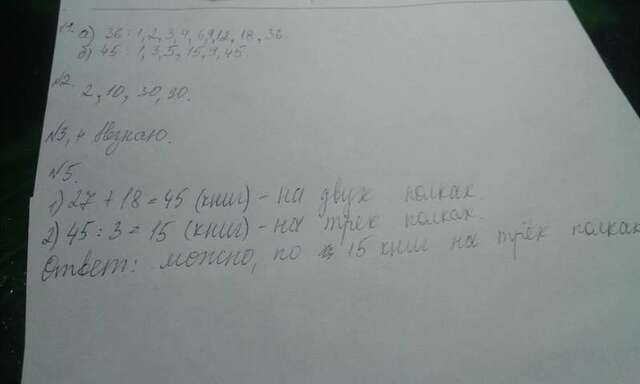 №1. а) 36: 1, 2, 3, 4, 6, 9, 12, 18, 36
б) 45: 1, 3, 5, 15, 9, 45
№2.
2, 10, 30, 90.
№3, 4 Незнаю.
№5.
1) 27 + 18 = 45 (книг) - на двух полках.
2) 45 : 3 = 15 (книг) - на трёх полках.
Ответ: можно, по 15 книг на трёх полках